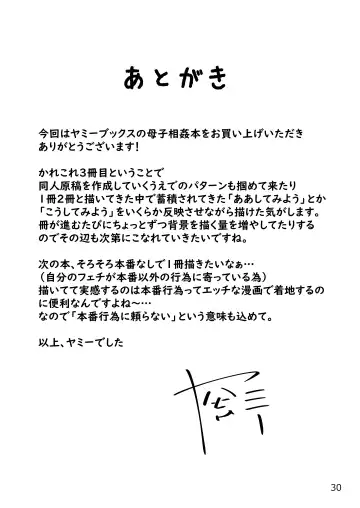 あとがき
今回はヤミーブックスの母子相姦本をお買い上げいただき
ありがとうございます!
かれこれ3冊目ということで
同人原稿を作成していくうえでのパターンも掴めて来たり
1冊2冊と描いてきた中で蓄積されてきた「ああしてみよう」とか
「こうしてみよう」をいくらか反映させながら描けた気がします。
冊が進むたびにちょっとずつ背景を描く量を増やしてたりする
のでその辺も次第にこなれていきたいですね。
次の本、そろそろ本番なしで1冊描きたいなぁ…
(自分のフェチが本番以外の行為に寄っている為)
描いてて実感するのは本番行為ってエッチな漫画で着地するの
に便利なんですよね〜…
なので「本番行為に頼らない」という意味も込めて。
以上、ヤミーでした
ヤミー
30